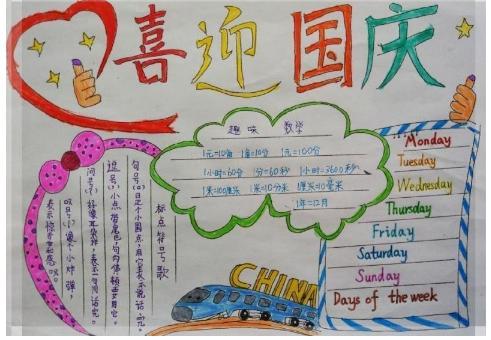 喜迎国庆
趣味 数学
1元=10角 1角=10分 1元=100分
1小时=60分 1分=60秒 1小时=3600秒
1米=100厘米 1米=10分米 1厘米=10毫米
1年=12月
标点符号歌
句号(。)是个小圆点,用它表示说话完。
逗号(,)小点带尾巴,句内停顿要用它。
问号(?)好像耳朵样,表示一句问话完。
叹号(!)像个小炸弹,
表示惊
CHINA
Monday
Tuesday
Wednesday
Thursday
Friday
Saturday
Sunday
Days of the week